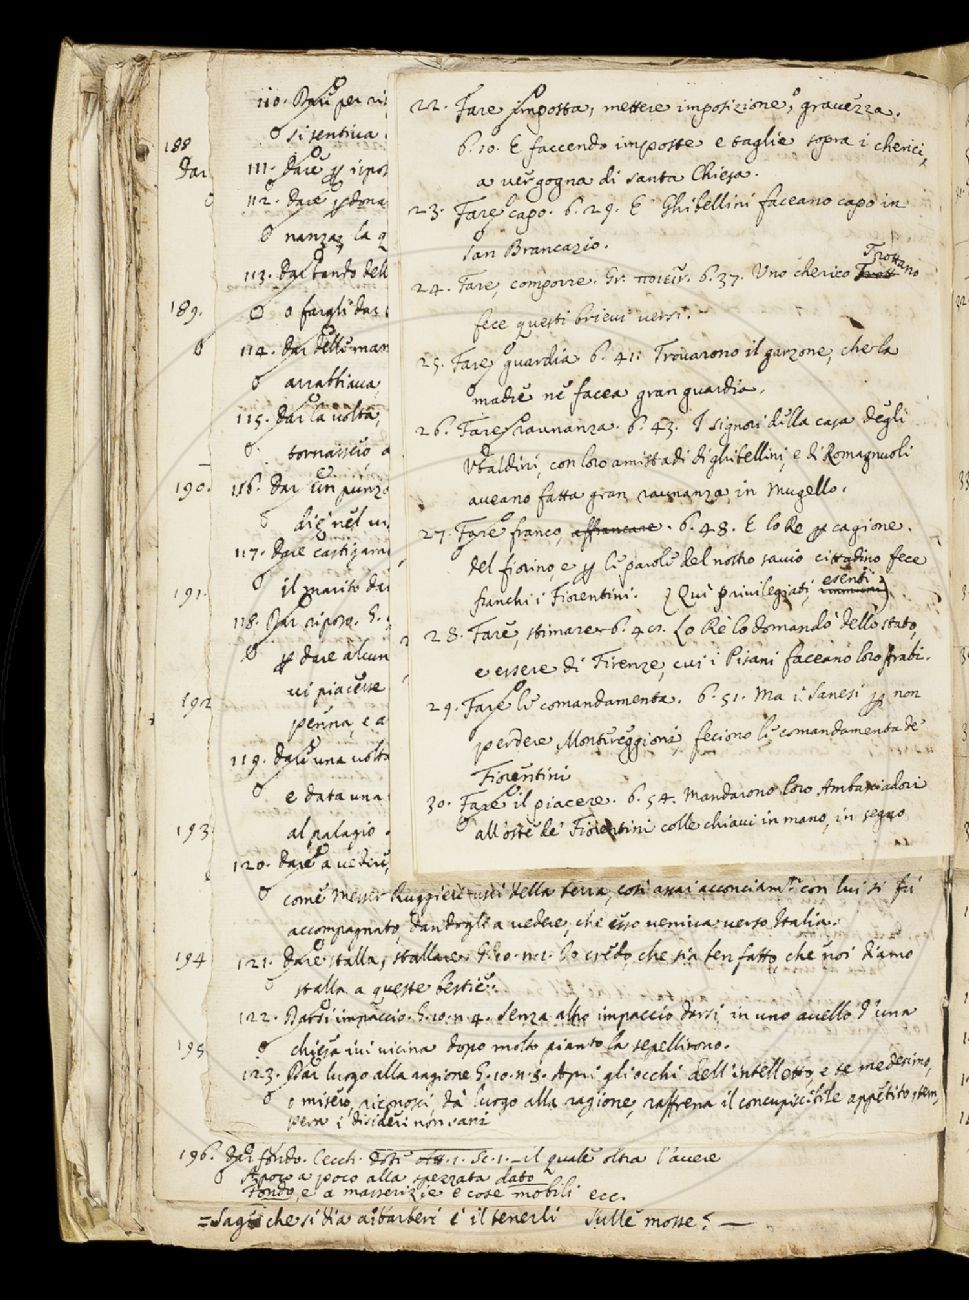 188
dar
189.
190.
191.
192
193
194
195
110. Dare per ri
si sentiva
111. dare ꝑ rispos
112. dare ꝑ dona
nanza, la q
113. dar bando dell
o fargli dar
114. dar delle man
arrabbiava
115. dar la volta,
tornassero a
116. dar un punzo
die' nel vi
117. dare castigam
il marito da
118. Dar riposo. G.
ꝑ dare alcun
vi piacesse
penna, e a
119. dare una volta
e data una
al palagio
120. dare a vedere,
22. Fare imposta, mettere imposizione, o gravezza.
6. 10. E faccendo imposte e taglie sopra i cherici,
a vergogna di santa Chiesa.
23. Fare capo. 6. 29. E Ghibellini faceano capo in
San Brancazio.
24. Fare, comporre. Gr. ποιεῖν. 6. 37. Uno cherico Trott Trottano
fece questi brievi versi.
25. Fare guardia 6. 41: Trovarono il garzone, che la
madre ne facea gran guardia.
26. Fare raunanza. 6. 43. I signori della casa degli
Ubaldini, con loro amistadi di ghibellini, e di Romagnuoli
aveano fatta gran raunanza in Mugello.
27. Fare franco, affrancare. 6. 48. E lo Re ꝑ cagione.
del fiorino, e ꝑ le parole del nostro savio cittadino fece
franchi i Fiorentini. (Qui privilegiati, esenti)
28. Fare, stimare 6. 49. Lo Re lo domandò dello stato,
e essere di Firenze, cui i Pisani faceano loro Arabi.
29. Fare le comandamenta. 6. 51. Ma i Sanesi ꝑ non
perdere Montereggioni, feciono le comandamenta de'
Fiorentini
30. Fare il piacere. 6. 54. Mandarono loro Ambasciadori
all'oste de' Fiorentini colle chiavi in mano, in segno
come Messer Ruggieri uscì della terra, così assai acconciam.te con lui si fu
accompagnato, dandogli a vedere, che esso veniva verso Italia.
121. dare stalla, stallare. G. 10. n. 1. Io credo, che sia ben fatto, che noi diamo
stalla a queste bestie.
122. Darsi impaccio. G. 10. n. 4. Senza altro impaccio darsi, in uno avello d'una
chiesa ivi vicina dopo molto pianto la sepellirono.
123. Dar luogo alla ragione G. 10. n. 8. Apri gli occhi dell'intelletto, e te medesimo,
o misero, riconosci, dà luogo alla ragione, raffrena il concupiscibile appetito, tem,
pera i disideri non sani
196. dar fondo. Cecch. Dote att. 1. Sc. 1. — il quale oltra l'avere
Apoco a poco alla spezzata dato
Fondo, e a masserizie e cose mobili ecc.
= Sagi che si dia a i barberi è il tenerli sulle mosse? —